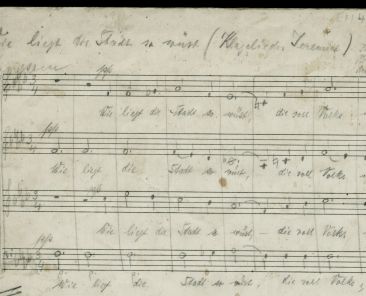 Wie liegt die Stadt so wüst (Klagelieder Jeremiae)
Wie liegt die Stadt so wüst, die voll Volks
Wie liegt die Stadt so wüst, die voll Volks
Wie liegt die Stadt so wüst – die voll Volks
Wie liegt die Stadt so wüst, die voll Volks